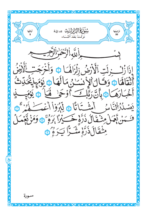 بِسْمِ اللَّهِ الرَّحْمَٰنِ الرَّحِيمِ
إِذَا زُلْزِلَتِ الْأَرْضُ زِلْزَالَهَا وَأَخْرَجَتِ الْأَرْضُ
أَثْقَالَهَا وَقَالَ الْإِنسَانُ مَا لَهَا يَوْمَئِذٍ تُحَدِّثُ
أَخْبَارَهَا بِأَنَّ رَبَّكَ أَوْحَىٰ لَهَا يَوْمَئِذٍ
يَصْدُرُ النَّاسُ أَشْتَاتًا لِّيُرَوْا أَعْمَالَهُمْ
فَمَن يَعْمَلْ مِثْقَالَ ذَرَّةٍ خَيْرًا يَرَهُ وَمَن يَعْمَلْ
مِثْقَالَ ذَرَّةٍ شَرًّا يَرَهُ